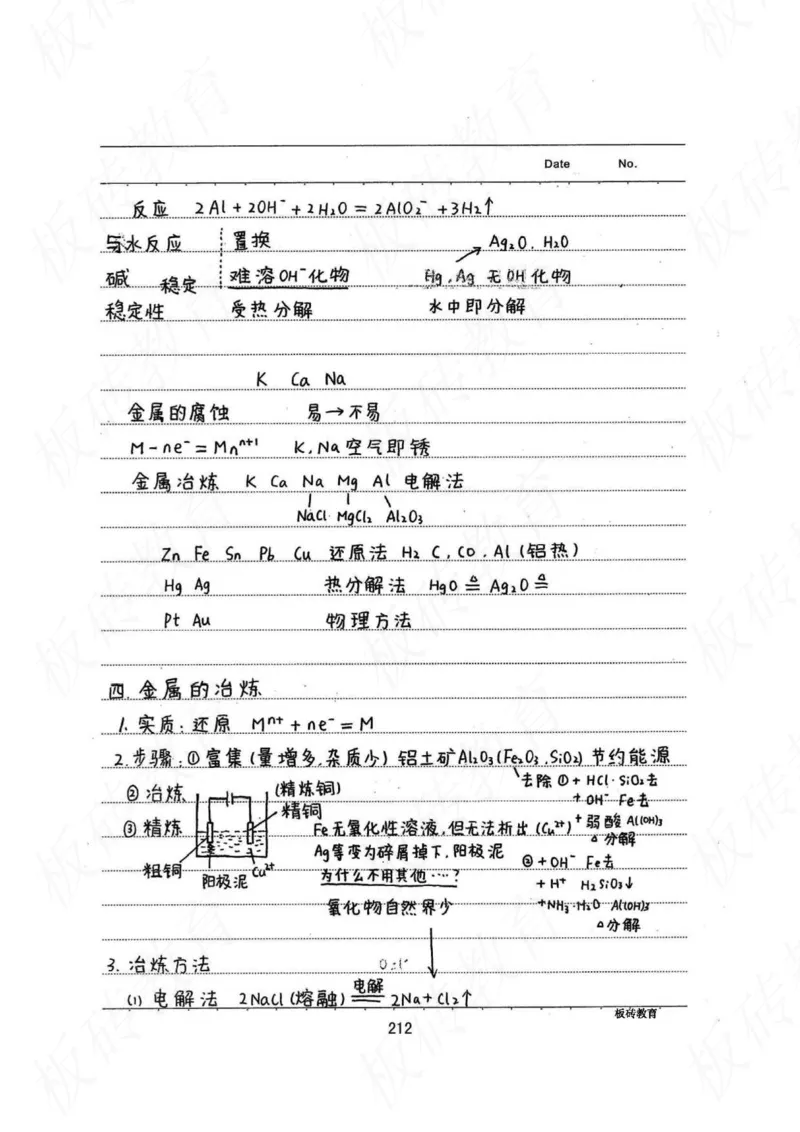 Date No.
反应 2Al + 2OH⁻ + 2H₂O = 2AlO₂⁻ + 3H₂↑
与水反应 置换 Ag₂O. H₂O
碱 稳定 难溶OH⁻化物 Hg, Ag 无OH化物
稳定性 受热分解 水中即分解
K Ca Na
金属的腐蚀 易→不易
M-ne⁻=Mnⁿ⁺¹ K, Na空气即锈
金属冶炼 K Ca Na Mg Al 电解法
NaCl MgCl₂ Al₂O₃
Zn Fe Sn Pb Cu 还原法 H₂ C, CO, Al (铝热)
Hg Ag 热分解法 HgO ≜ Ag₂O ≜
Pt Au 物理方法
四. 金属的冶炼
1. 实质: 还原 Mⁿ⁺ + ne⁻ = M
2. 步骤: ①富集 (量增多, 杂质少) 铝土矿Al₂O₃(Fe₂O₃, SiO₂) 节约能源
去除 ① + HCl · SiO₂去
②冶炼 (精炼铜)
+ OH⁻ Fe去
精铜
③精炼 Fe无氧化性溶液, 但无法析出 (Cu²⁺) + 弱酸 Al(OH)₃
△分解
Ag等变为碎屑掉下, 阳极泥 ② + OH⁻ Fe去
粗铜 阳极泥 Cu²⁺ 为什么不用其他…? + H⁺ H₂SiO₃↓
氧化物自然界少 + NH₃·H₂O Al(OH)₃
△分解
3. 冶炼方法
(1) 电解法 2NaCl (熔融) 电解══ 2Na + Cl₂↑
板砖教育
212